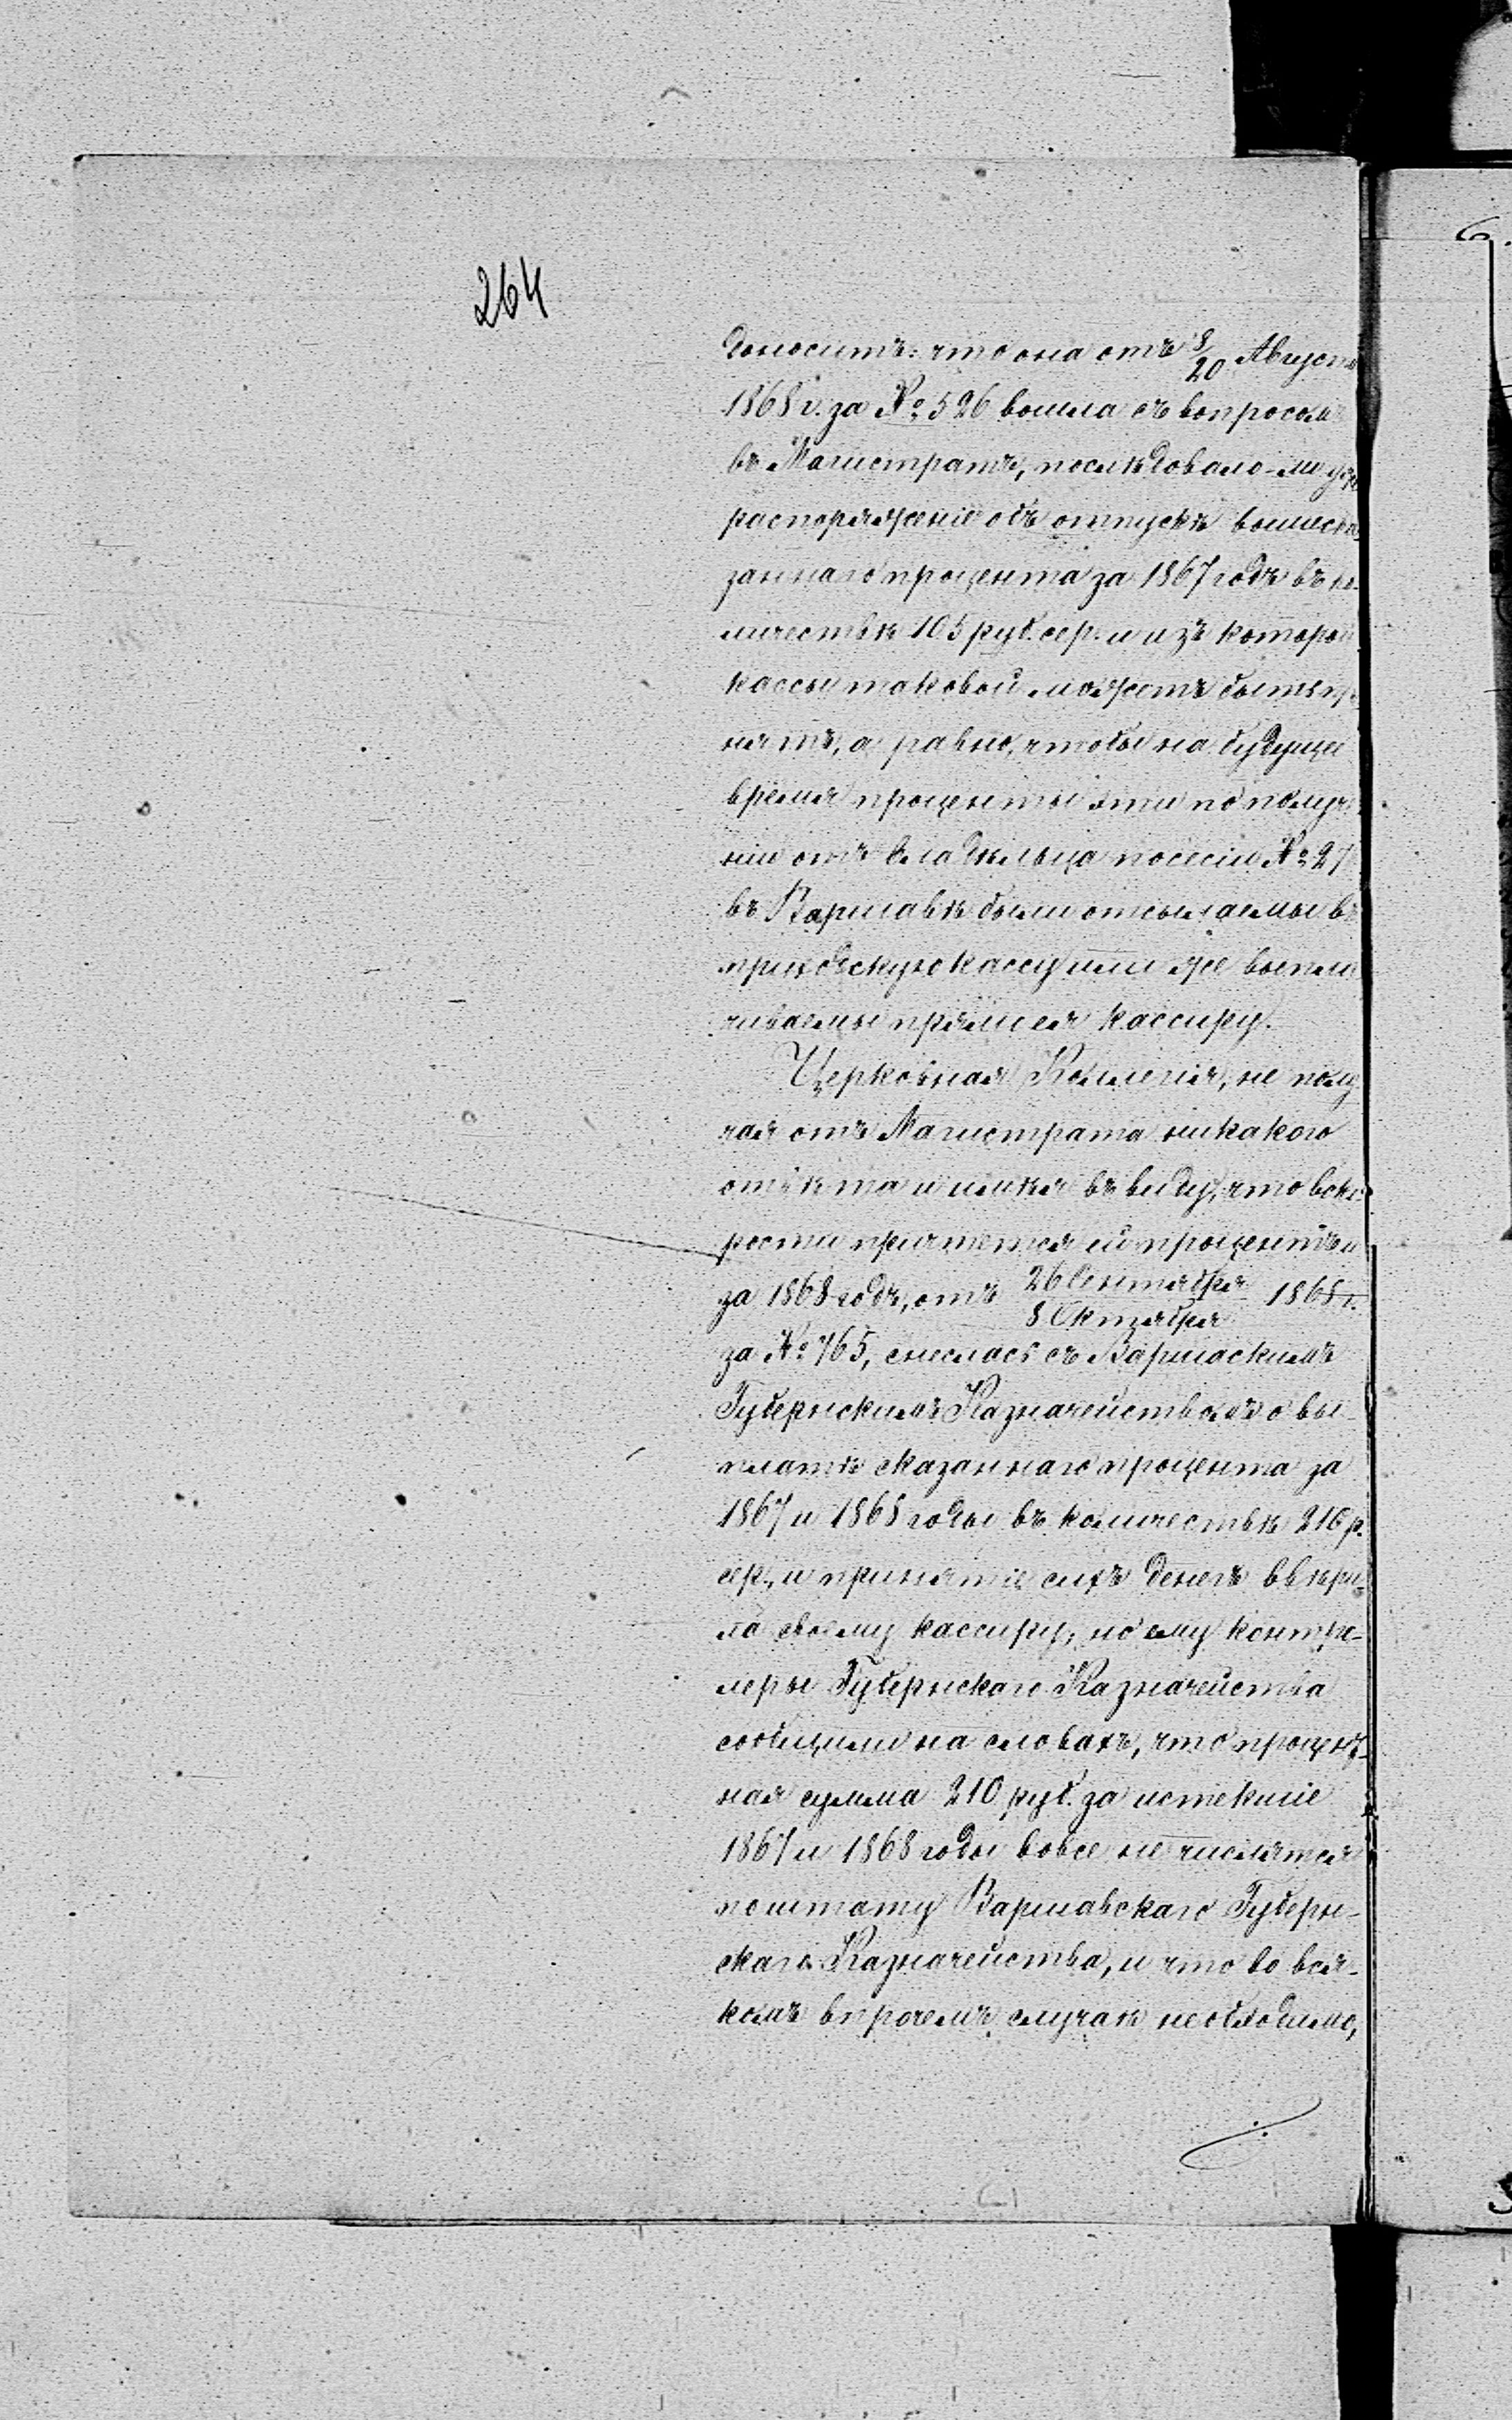 264
доноситъ: что она отъ 8/20 Августа
1868 г. за № 526 вошла съ вопросомъ
въ Магистратъ, послѣдовало-ли уже
распоряженіе объ отпускѣ вышеска
заннаго процента за 1867 годъ въ ко
личествѣ 105 руб. сер. и изъ которой
кассы таковой можетъ быть пр
нятъ, а равно, чтобы на будущее
время проценты эти по получе
ніи отъ владѣльца посесіи № 27
въ Варшавѣ были отсылаемы въ
приходскую кассу или же выпла
чиваемы прямо ея кассиру.
Церковная Коллегія, не полу
чая отъ Магистрата никакого
отвѣта и имѣя въ виду, что вско
рости причтется ей процентъ и
за 1868 годъ, отъ 26 Сентября / 8 Октября 1868 г.
за № 765, снеслась съ Варшаскимъ
Губернскимъ Казначействомъ о вы
платѣ сказаннаго процента за
1867 и 1868 годы въ количествѣ 210 р.
сер., и принятіе сихъ денегъ ввѣри
ла своему кассиру, но ему контро-
леры Губернскаго Казначейства
сообщили на словахъ, что процент-
ная сумма 210 руб. за истекшіе
1867 и 1868 годы вовсе не числятся
по штату Варшавскаго Губерн-
скаго Казначейства, и что во вся-
комъ впрочемъ случаѣ необходимо,